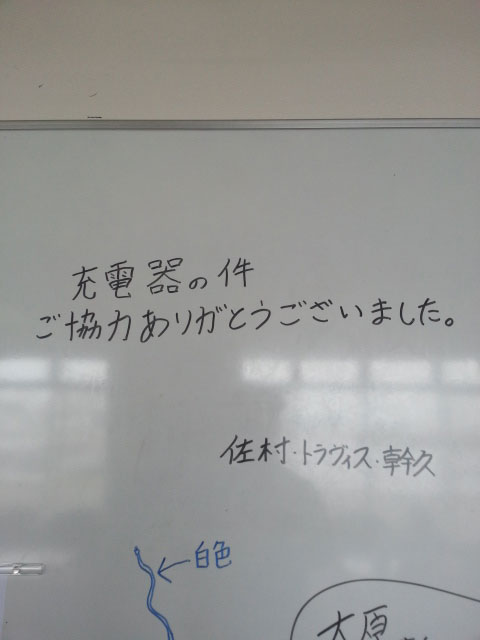 充電器の件
ご協力ありがとうございました。
佐村・トラヴィス・幹久
白色
大原